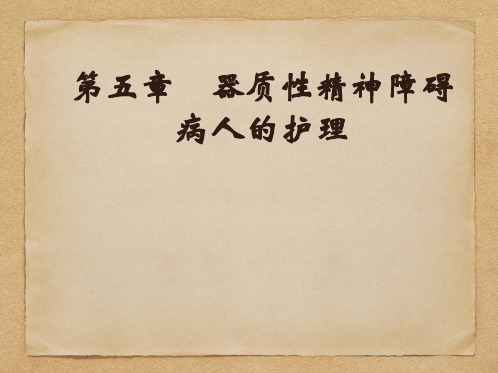 第五章　器质性精神障碍
病人的护理